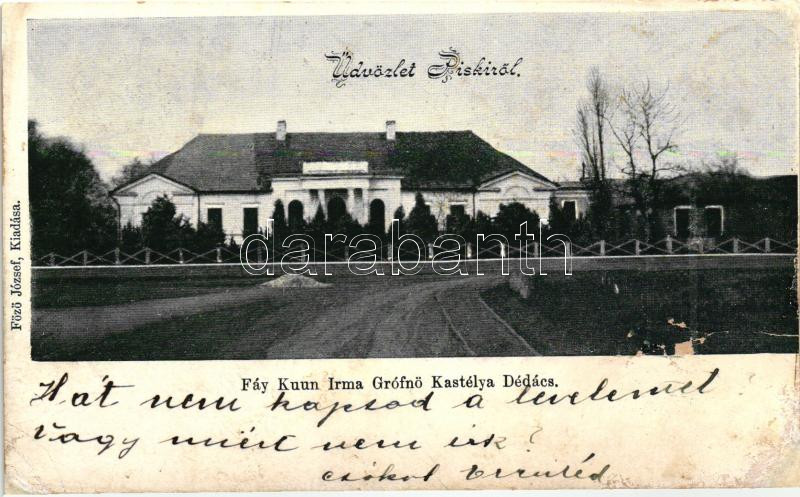 Üdvözlet Piskiről.
Főző József, Kiadása.
darabanth
Fáy Kuun Irma Grófnö Kastélya Dédács.
Hát nem kapsod a levelemet?
Vagy miért nem irk?
csókol